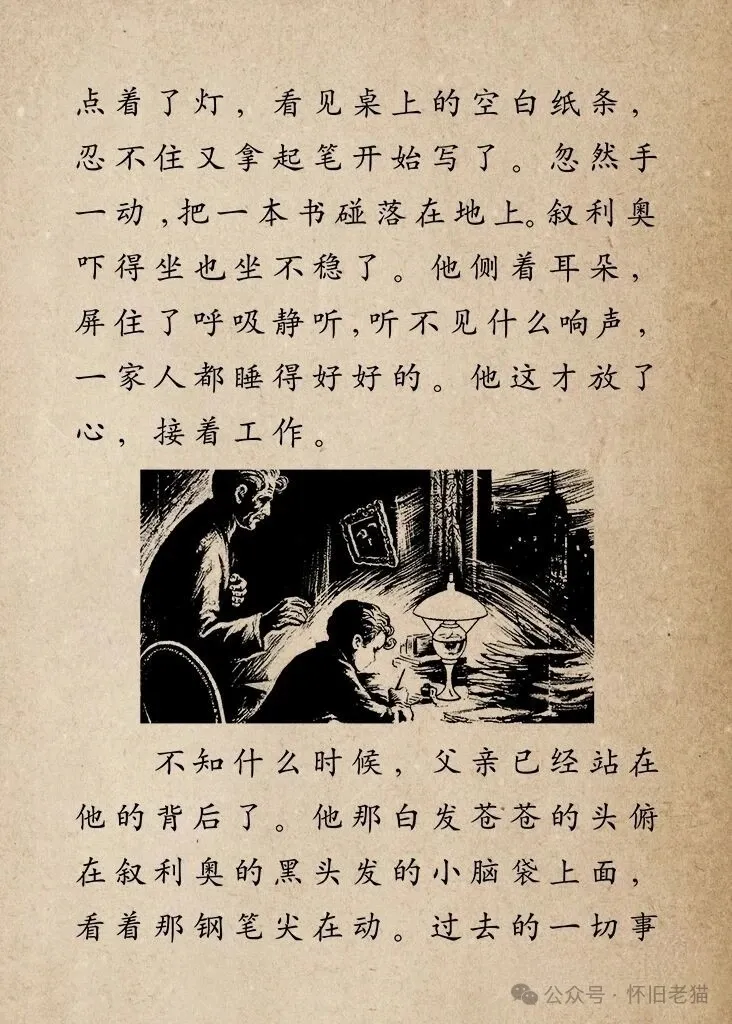 点着了灯，看见桌上的空白纸条，
忍不住又拿起笔开始写了。忽然手
一动，把一本书碰落在地上。叙利奥
吓得坐也坐不稳了。他侧着耳朵，
屏住了呼吸静听，听不见什么响声，
一家人都睡得好好的。他这才放了
心，接着工作。
不知什么时候，父亲已经站在
他的背后了。他那白发苍苍的头俯
在叙利奥的黑头发的小脑袋上面，
看着那钢笔尖在动。过去的一切事
公众号·怀旧老猫